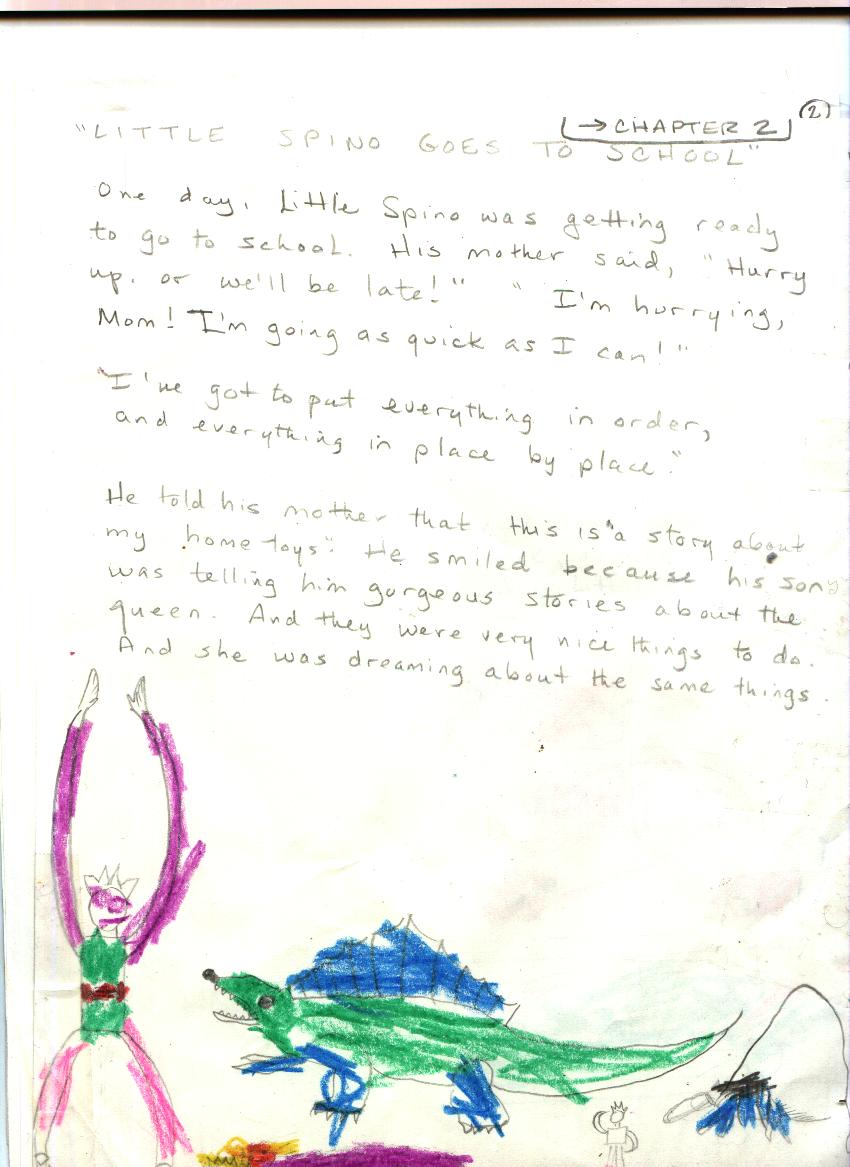 (2)
→CHAPTER 2
"LITTLE SPINO GOES TO SCHOOL"
One day, Little Spino was getting ready
to go to school. His mother said, "Hurry
up, or we'll be late!" " I'm hurrying,
Mom! I'm going as quick as I can!"
"I've got to put everything in order,
and everything in place by place."
He told his mother that this is "a story about
my home toys". He smiled because his son
was telling him gorgeous stories about the
queen. And they were very nice things to do.
And she was dreaming about the same things.